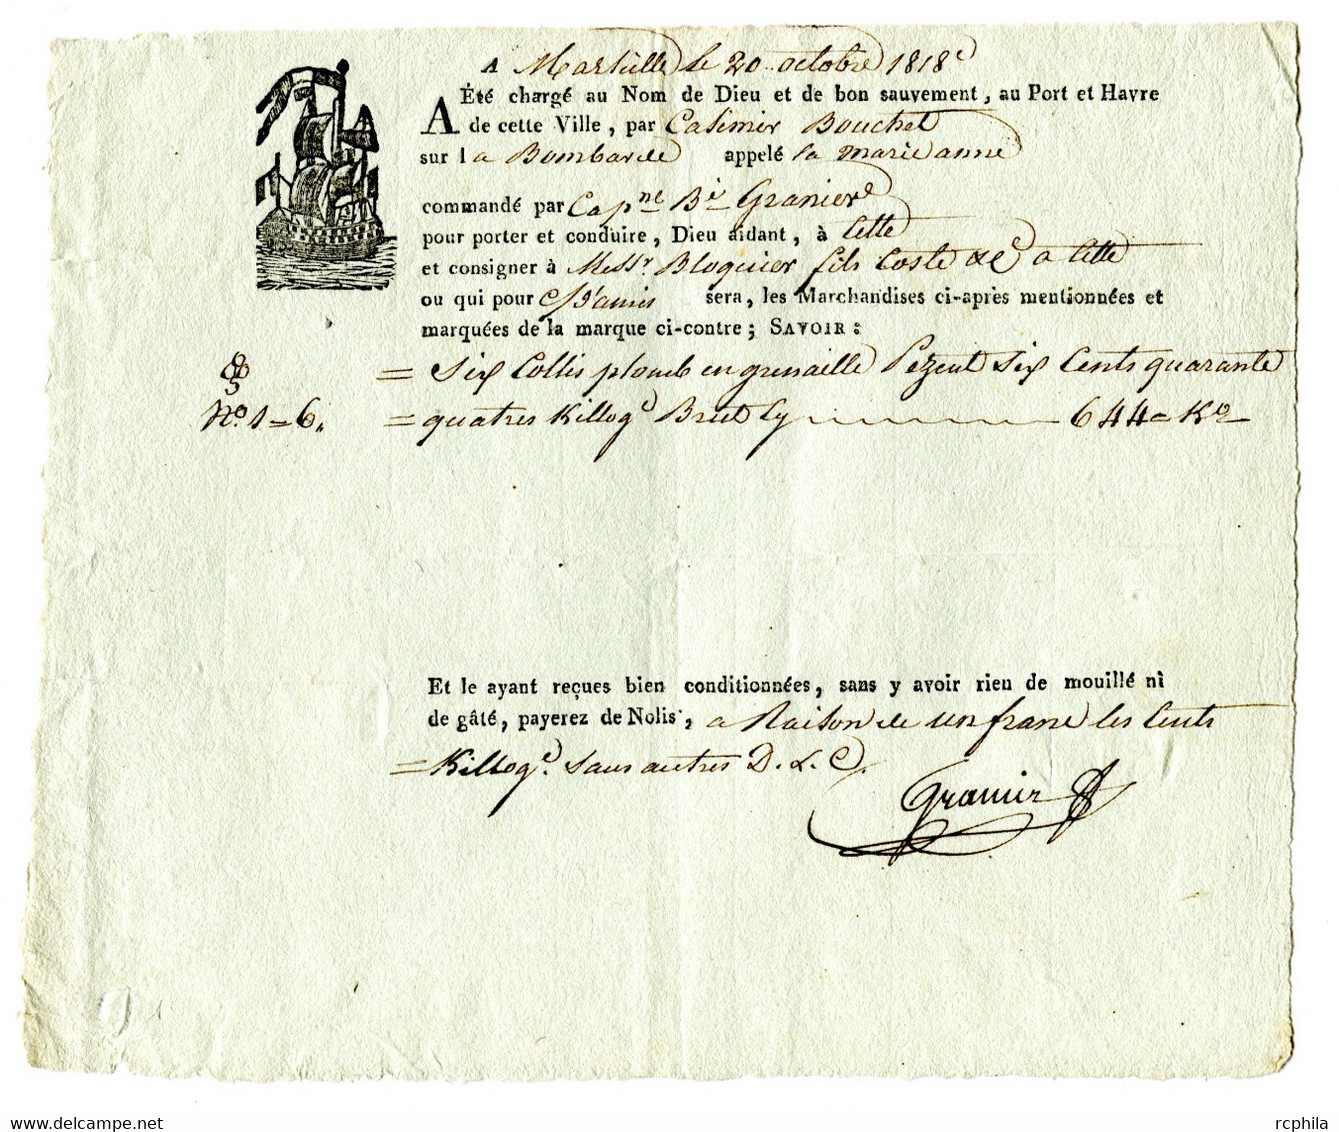 A Marseille le 20 octobre 1818
A Été chargé au Nom de Dieu et de bon sauvement, au Port et Havre
de cette Ville, par Casimir Bouchet
sur la Bombarde appelé la marie anne
commandé par Capne Bé Granier
pour porter et conduire, Dieu aidant, à Cette
et consigner à Messr Bloquier fils Coste &C a Cette
ou qui pour d'amis sera, les Marchandises ci-après mentionnées et
marquées de la marque ci-contre; SAVOIR:
= Six Collis plomb en grenaille Pezent Six Cents quarante
No 1 = 6 = quatres Killogd Brut Cy 644 = Ko
Et le ayant reçues bien conditionnées, sans y avoir rien de mouillé ni
de gâté, payerez de Nolis, a Raison de un franc les Cents
= Killogd. Sans autres D. & C
Granier
rcphila